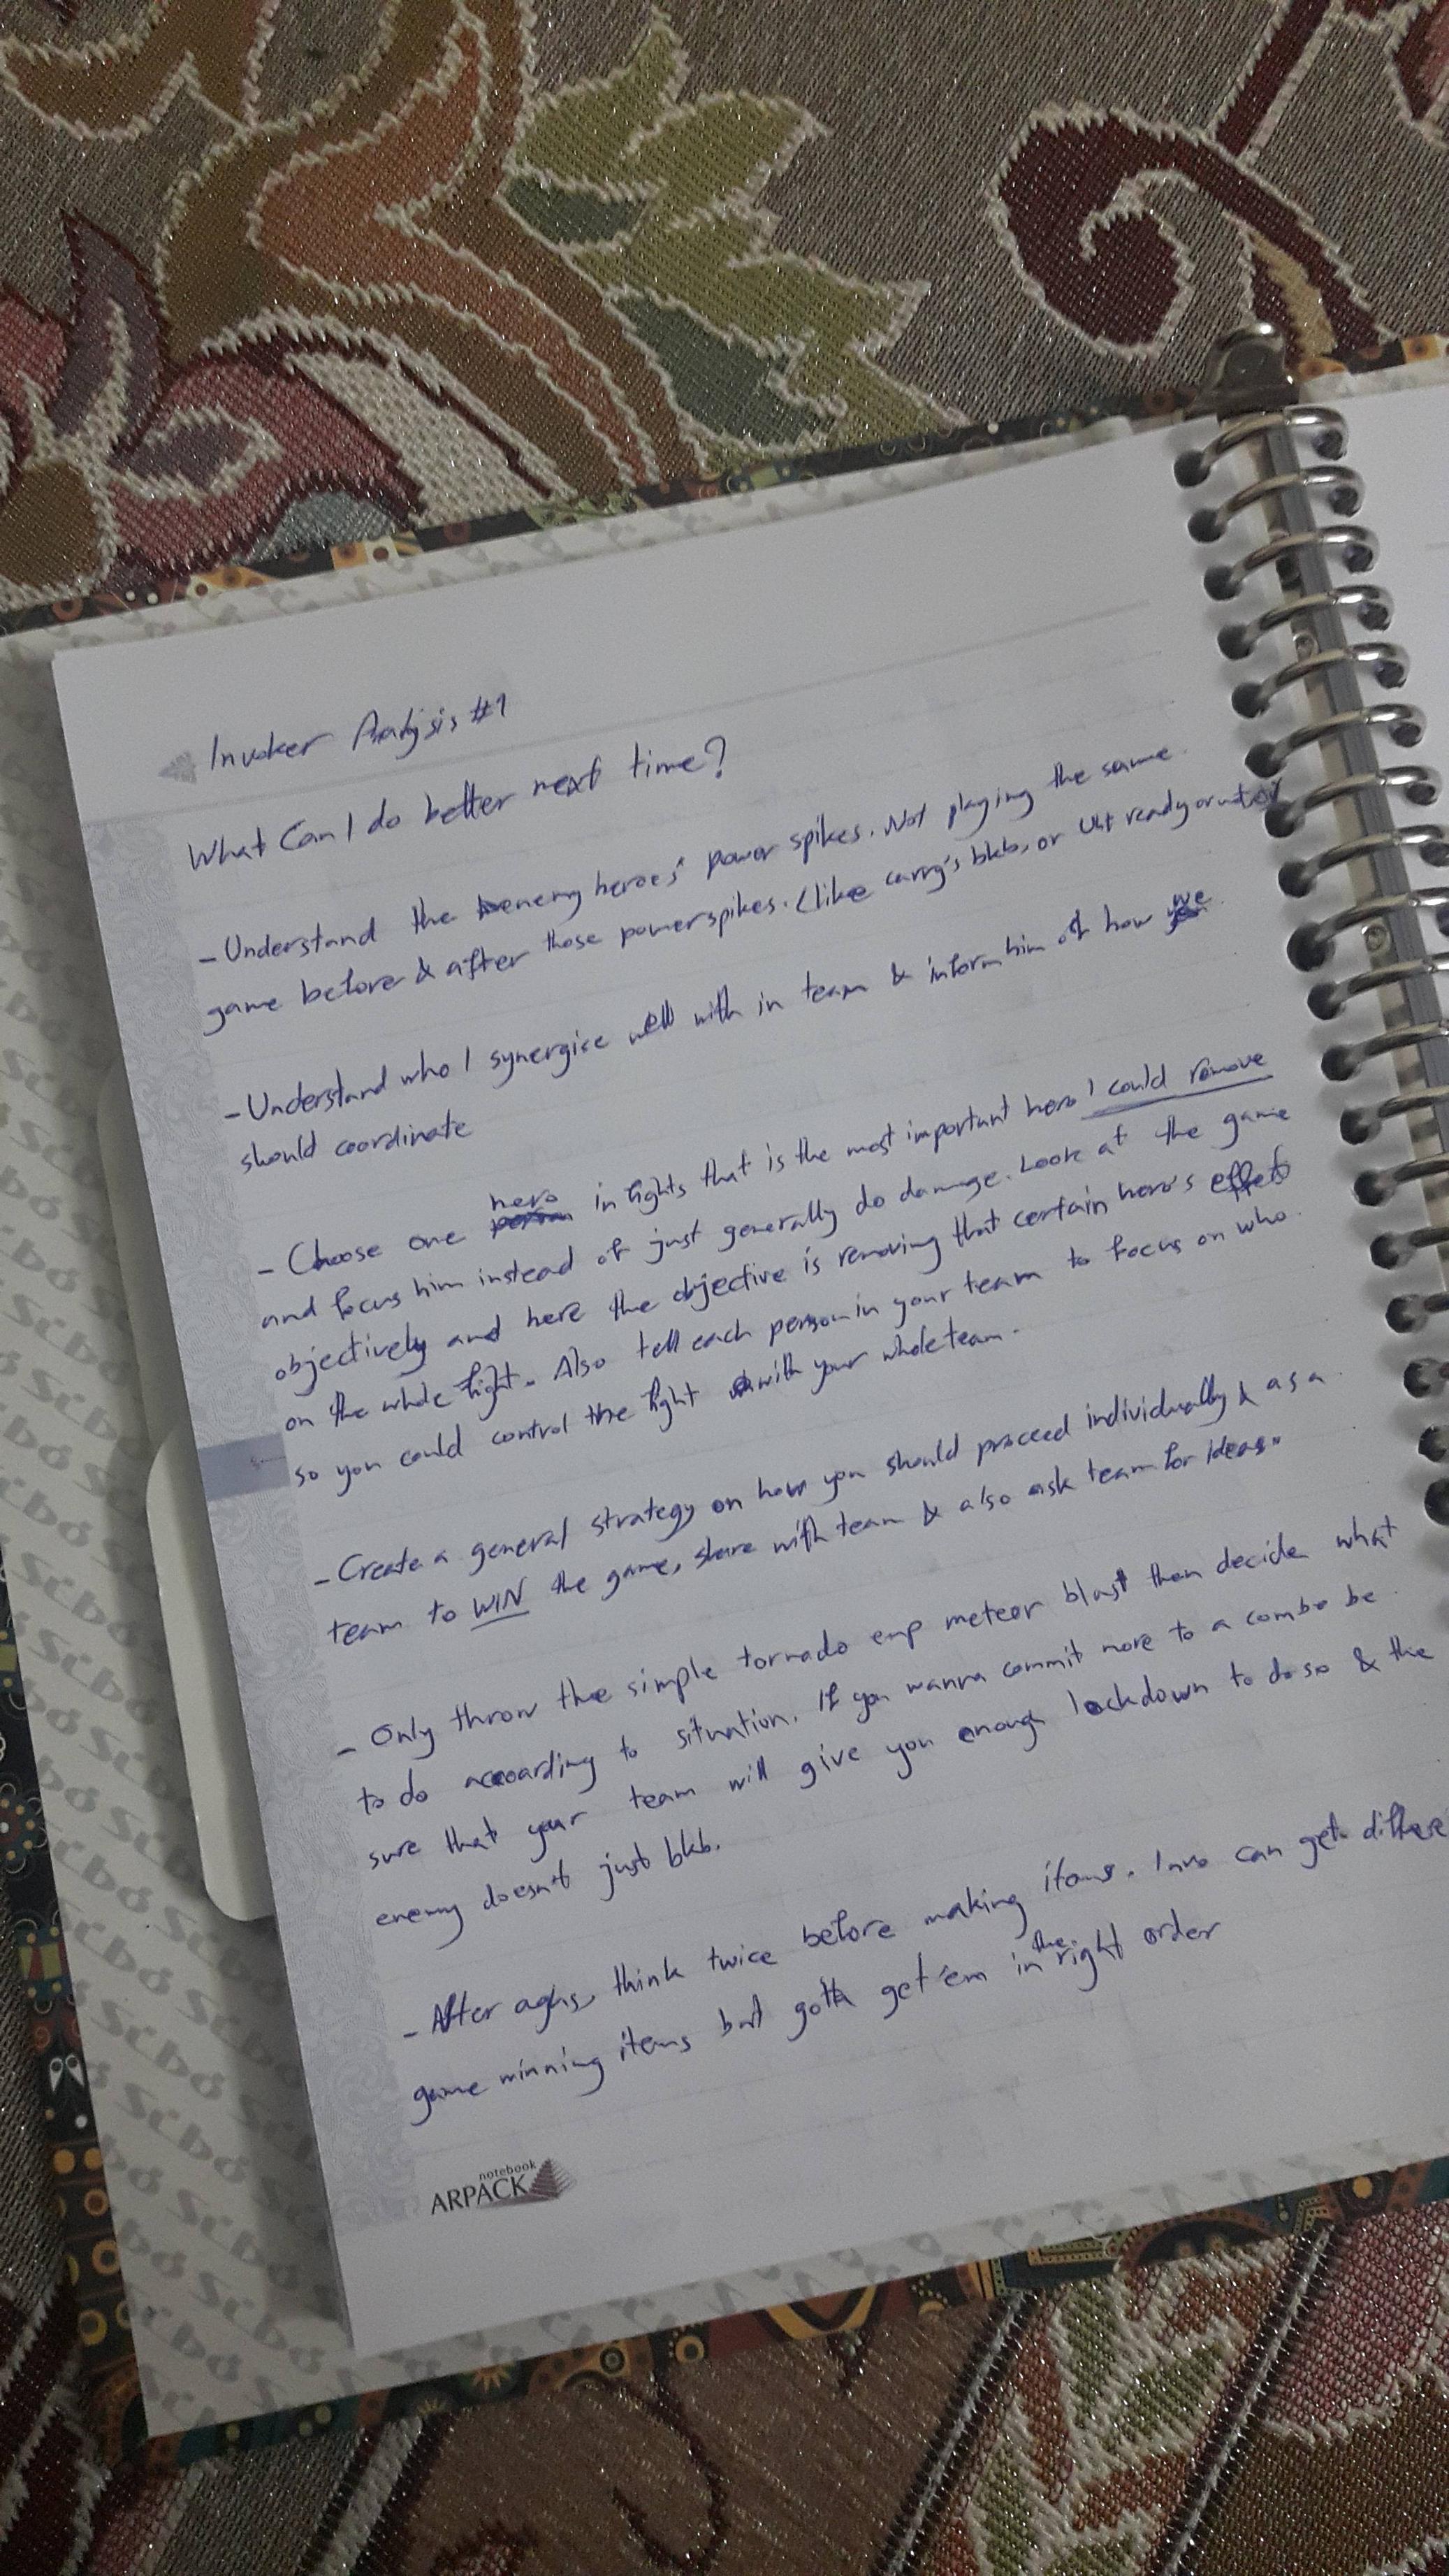 Invoker Analysis #1
What Can I do better next time?
- Understand the enemy heroes' power spikes. Not playing the same
game before & after those powerspikes. (like carry's bkb, or Ult ready or not)
- Understand who I synergize well with in team & inform him of how we
should coordinate
- Choose one hero in fights that is the most important hero I could remove
and focus him instead of just generally do damage. Look at the game
objectively and here the objective is removing that certain hero's effect
on the whole fight. Also tell each person in your team to focus on who
so you could control the fight with your whole team.
- Create a general strategy on how you should proceed individually & as a
team to WIN the game, share with team & also ask team for ideas.
- Only throw the simple tornado emp meteor blast then decide what
to do according to situation. If you wanna commit more to a combo be
sure that your team will give you enough lockdown to do so & the
enemy doesn't just bkb.
- After aghs, think twice before making items. Invo can get differe
game winning items but gotta get 'em in the right order
notebook
ARPACK